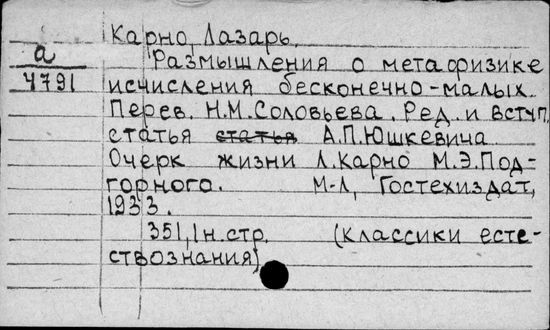 Карно, Лазарь.
а
4791
Размышления о метафизике
исчисления бесконечно-малых.
Перев. Н.М.Соловьева. Ред. и вступ.
статья статья А.П.Юшкевича
Очерк жизни Л.Карно М.Э.Под-
горного. М-Л, Гостехиздат,
1933.
351,1н.стр. (Классики есте-
ствознания)